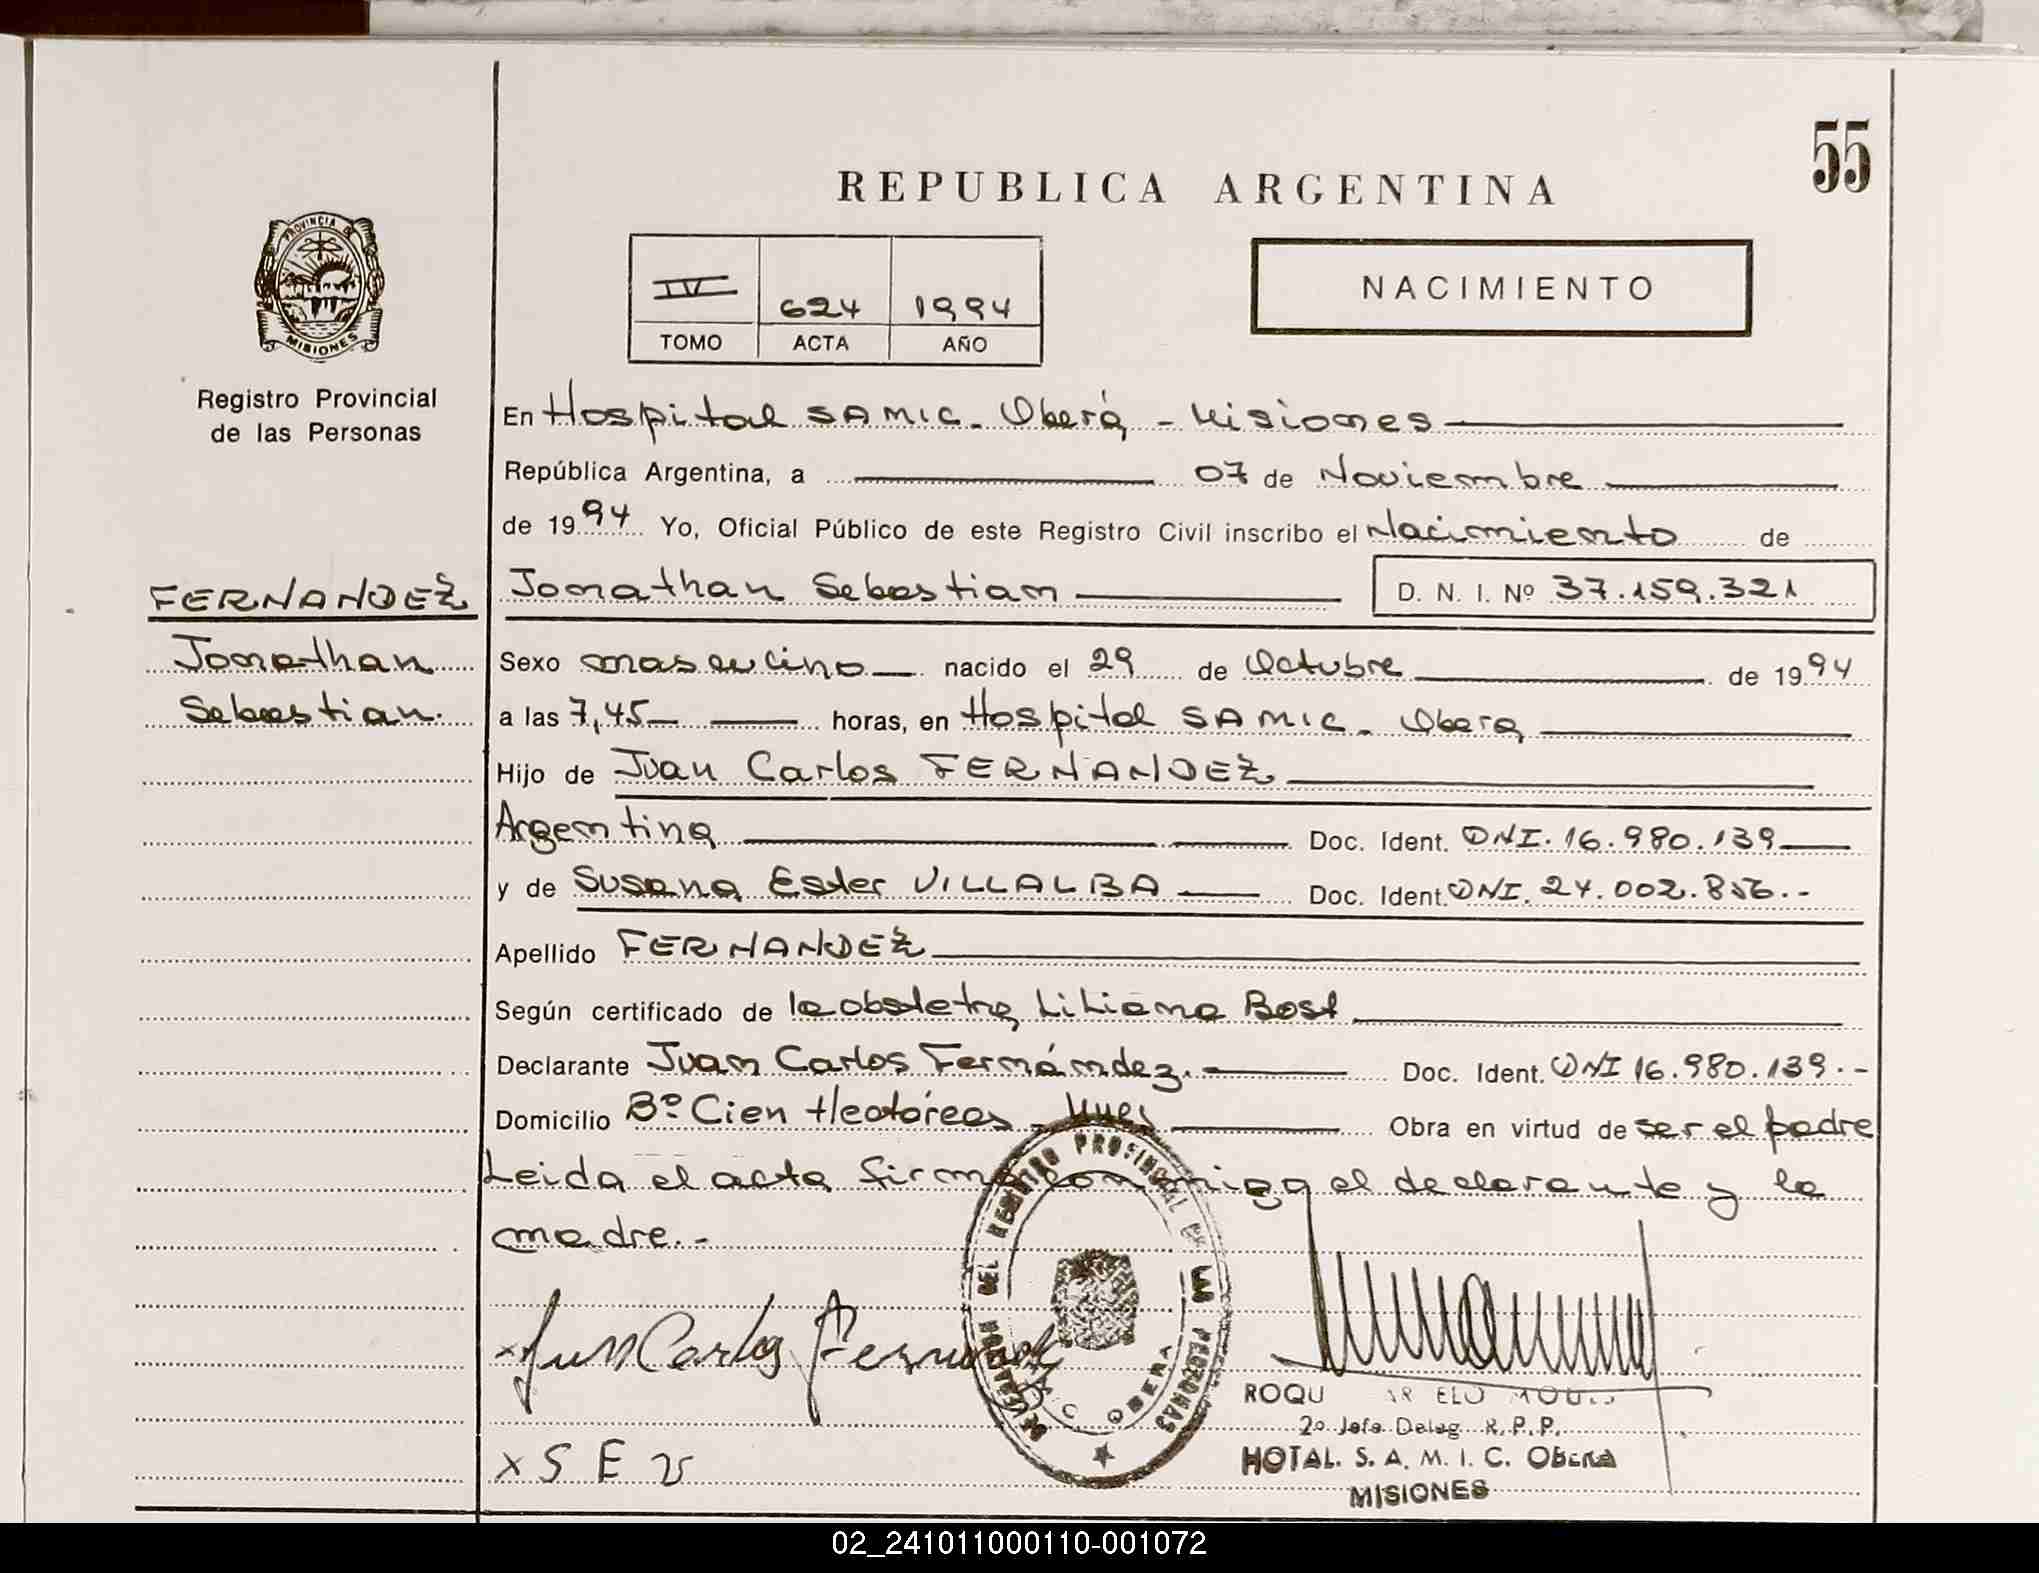 55
REPUBLICA ARGENTINA
PROVINCIA DE
MISIONES
IV 624 1994
TOMO ACTA AÑO
NACIMIENTO
Registro Provincial
de las Personas
En Hospital SAMIC - Oberá - Misiones
República Argentina, a 07 de Noviembre
de 1994 Yo, Oficial Público de este Registro Civil inscribo el Nacimiento de
FERNANDEZ
Jonathan
Sebastian.
Jonathan Sebastian D. N. I. Nº 37.159.321
Sexo masculino nacido el 29 de Octubre de 1994
a las 7,45 horas, en Hospital SAMIC - Oberá
Hijo de Juan Carlos FERNANDEZ
Argentina Doc. Ident. DNI. 16.980.139
y de Susana Ester VILLALBA Doc. Ident. DNI. 24.002.856.-
Apellido FERNANDEZ
Según certificado de la obstetra Liliana Bost
Declarante Juan Carlos Fernández.- Doc. Ident. DNI 16.980.139.-
Domicilio Bº Cien Hectáreas Obra en virtud de ser el padre
Leida el acta firma conmigo el declarante y la
madre.-
x Juan Carlos Fernandez
x S E V
DELEGACION DEL REGISTRO PROVINCIAL DE LAS PERSONAS
OBERA
ROQU
2º Jefe Deleg. R.P.P.
HOTAL. S. A. M. I. C. Obera
MISIONES
02_241011000110-001072